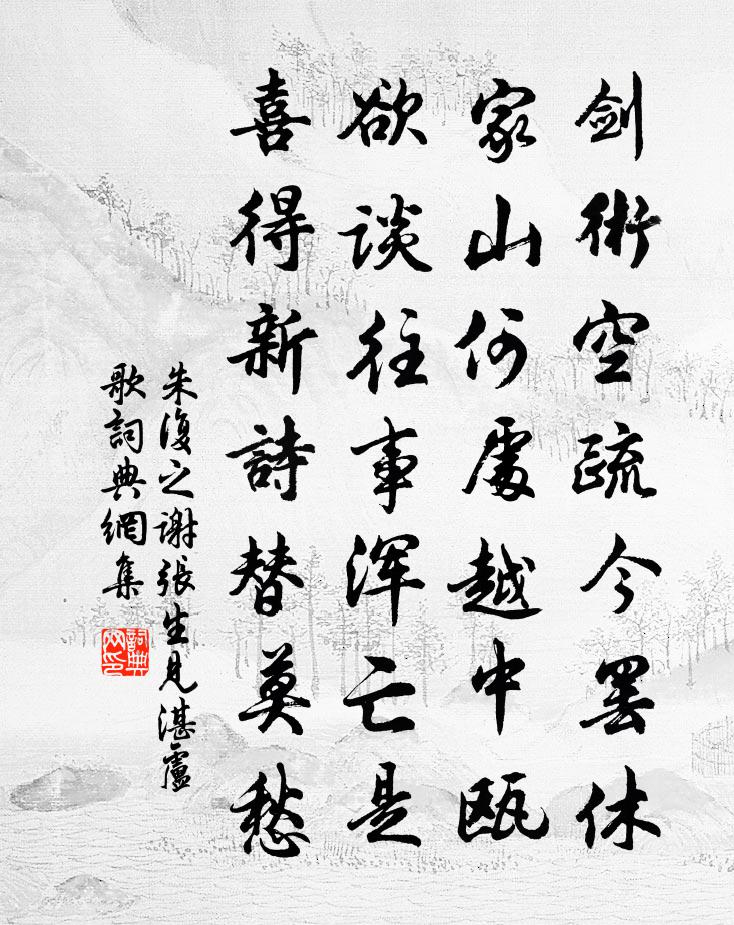 剑術空疏今罢休
家山何處越中瓯
欲談往事浑亡是
喜得新詩替莫愁
朱復之謝張生見湛盧
歌詞典網集
詞典
网印